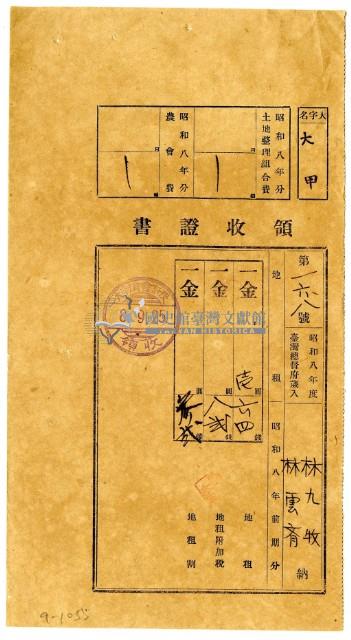 大字名
大甲
昭和八年分
土地整理組合費
昭和八年分
農會費
領收證書
第一六八號
昭和八年度
臺灣總督府歲入
地租
昭和八年前期分
林九牧
林雲齊
納
一金
圓
錢
地租
一金
圓
錢
地租附加稅
一金
圓
錢
地租割
8.9.25
領收
國史館臺灣文獻館
TAIWAN HISTORICA
9-1055